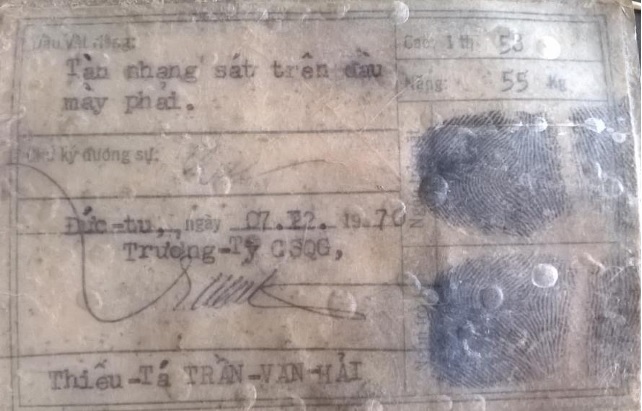 Dấu vết riêng:
Cao: 1 th 58
Tàn nhang sát trên đầu
mày phải.
Nặng: 55 Kg
Chữ ký đương sự:
Đức-tu, ngày 07.12. 1970
Trưởng-Ty CSQG,
Thiếu-Tá TRẦN-VĂN-HẢI